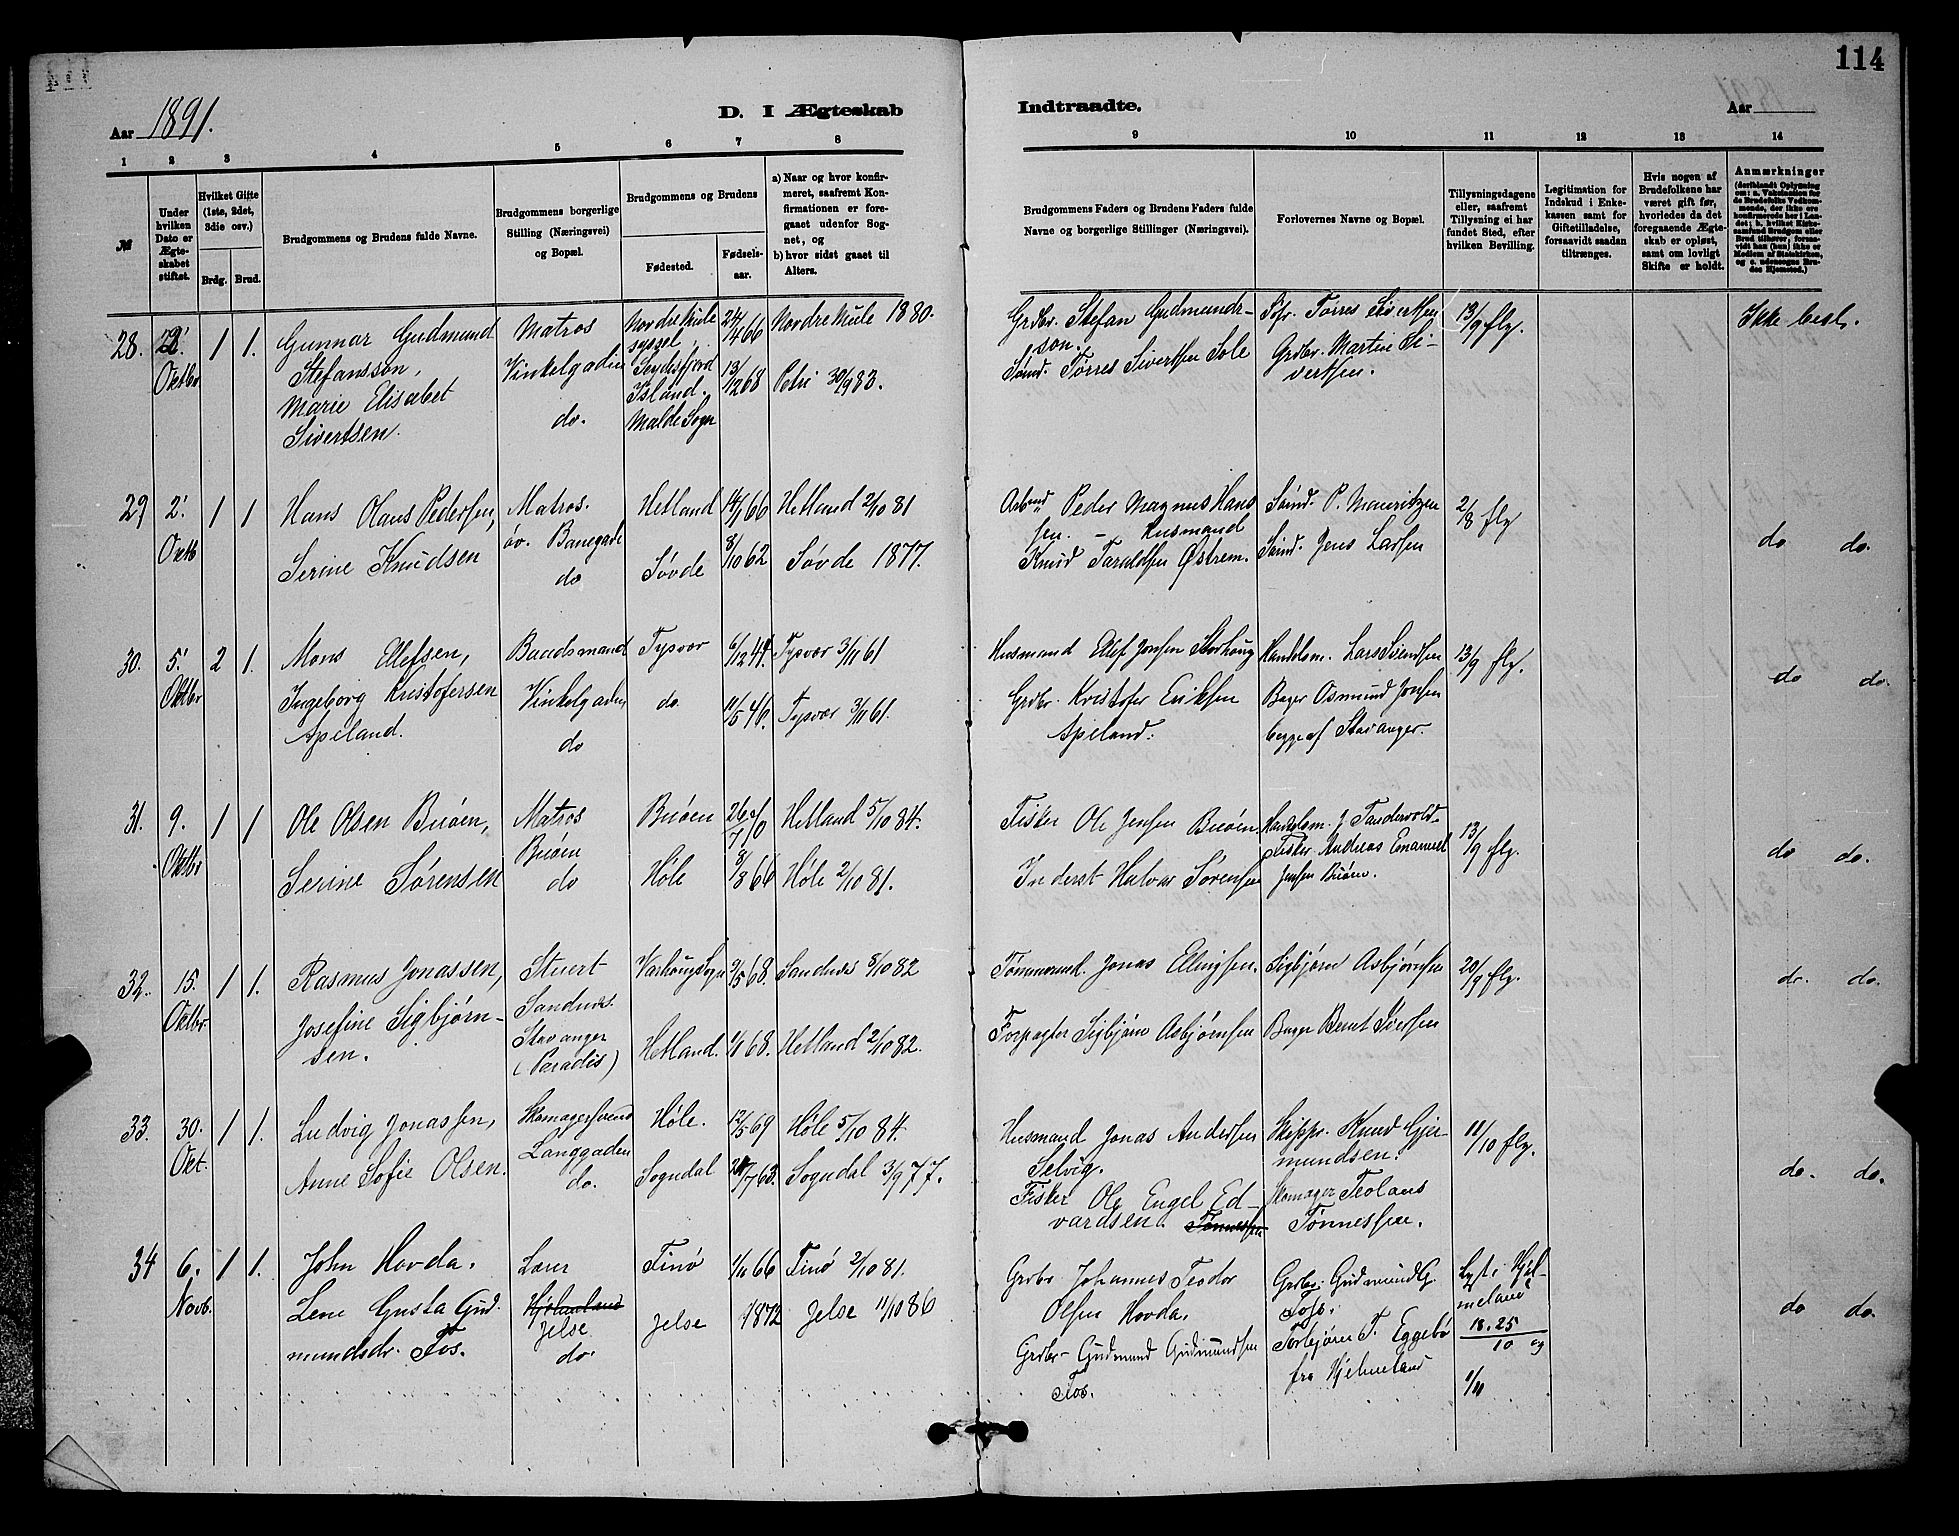 114
Aar 1891.
D. I Ægteskab
Indtraadte.
Aar
1 2 3 4 5 6 7 8
9 10 11 12 13 14
№
Under hvilken Dato er Ægteskabet stiftet.
Hvilket Gifte (1ste, 2det, 3die osv.)
Brdg. Brud.
Brudgommens og Brudens fulde Navne.
Brudgommens borgerlige Stilling (Næringsvei) og Bopæl.
Brudgommens og Brudens
Fødested.
Fødselsaar.
a) Naar og hvor konfirmeret, saafremt Konfirmationen er foregaaet udenfor Sognet, og
b) hvor sidst gaaet til Alters.
Brudgommens Faders og Brudens Faders fulde Navne og borgerlige Stillinger (Næringsvei).
Forlovernes Navne og Bopæl.
Tillysningsdagene eller, saafremt Tillysning ei har fundet Sted, efter hvilken Bevilling.
Legitimation for Indskud i Enkekassen samt for Giftetilladelse, forsaavidt saadan tiltrænges.
Hvis nogen af Brudefolkene har været gift før, hvorledes da det foregaaende Ægteskab er opløst, samt om lovligt Skifte er holdt.
Anmærkninger
28. 2' Oktbr 1 1.
Gunnar Gudmund
Stefansson,
Marie Elisabet
Sivertsen.
Matros
Vinkelgaden
do.
Nordre Mule
syssel,
Seydisfjord
Island.
Malde Sogn
24/4 66
13/12 68
Nordre Mule 1880.
Petri 30/9 83.
Grdbr. Stefan Gudmundr-
son.
Sømd. Tørres Sivertsen Sole
Tørres Sivertsen
Grdbr. Martin Si-
vertsen.
13/9 flg.
Ikke besl.
29 2' Oktb 1 1
Hans Olaus Pedersen,
Serine Knudsen
Matros.
øv. Banegade
do
Hetland
Søvde
14/1 66
8/10 62
Hetland 2/10 81
Søvde 1877.
Arbmd Peder Magnus Hans
sen. - Husmand
Knud Taraldsen Østrem.
Sømd. P. Mauritzen
Sømd. Jens Larsen
2/8 flg
do do.
30. 5' Oktbr 2 1.
Mons Ellefsen,
Ingeborg Kristofersen
Apeland.
Baadsmand
Vinkelgaden
do
Tysvær
do.
6/12 44.
11/5 46.
Tysvær 3/11 61
Tysvær 3/11 61.
Husmand Ellef Jonsen Storhoug
Grdbr. Kristofer Eriksen
Apeland.
Handelsm. Lars Svendsen
Bager Osmund Jonsen
begge af Stavanger.
13/9 flg.
do do.
31. 9. Oktbr 1 1
Ole Olsen Buøen,
Serine Sørensen
Matros
Buøen
do
Buøen
Høle
26/7 70
8/8 66
Hetland 5/10 84.
Høle 2/10 81.
Fisker Ole Jensen Buøen
Inderst Halvar Sørensen
Handelsm. J. Tandervold.
Fisker Andreas Emanuel
Jensen Buøen.
13/9 flg.
do do.
32. 15. Oktbr. 1 1.
Rasmus Jonassen,
Josefine Sigbjørn-
sen.
Stuert
Sandnes.
Stavanger
(Paradis)
Varhoug Sogn
Hetland.
9/5 68.
1/1 68.
Sandnes 8/10 82
Hetland 2/10 82.
Tømmermd. Jonas Elingsen.
Forpagter Sigbjørn Asbjørnsen
Sigbjørn Asbjørnsen
Bager Bernt Iversen
20/9 flg.
do. do.
33. 30. Oct. 1 1.
Ludvig Jonassen,
Anne Sofie Olsen.
Skomagersvend
Langgaden
do.
Høle.
Sogndal
12/5 69
21/7 63.
Høle 5/10 84.
Sogndal 3/9 77.
Husmand Jonas Andersen
Selvig.
Fisker Ole Engel Ed-
vardsen. Tønnessen
Skippr. Knud Gjer-
mundsen.
Skomager Teolaus
Tønnessen.
11/10 flg.
do. do.
34 6. Novb. 1 1.
John Hovda.
Lene Gusta Gud-
mundsdr. Fos.
Lærer
Hjelmeland
Jelse.
do.
Finø
Jelse
1/11 66
1872
Finø 2/10 81.
Jelse 11/10 86
Grdbr Johannes Teodor
Olsen Hovda.
Grdbr- Gudmund Gudmundsen
Fos.
Grdbr. Gudmund G.
Fos.
Torbjørn T. Eggebø
fra Hjelmeland
Lyst i Hjel-
meland
18. 25/10 og
1/11
do do.